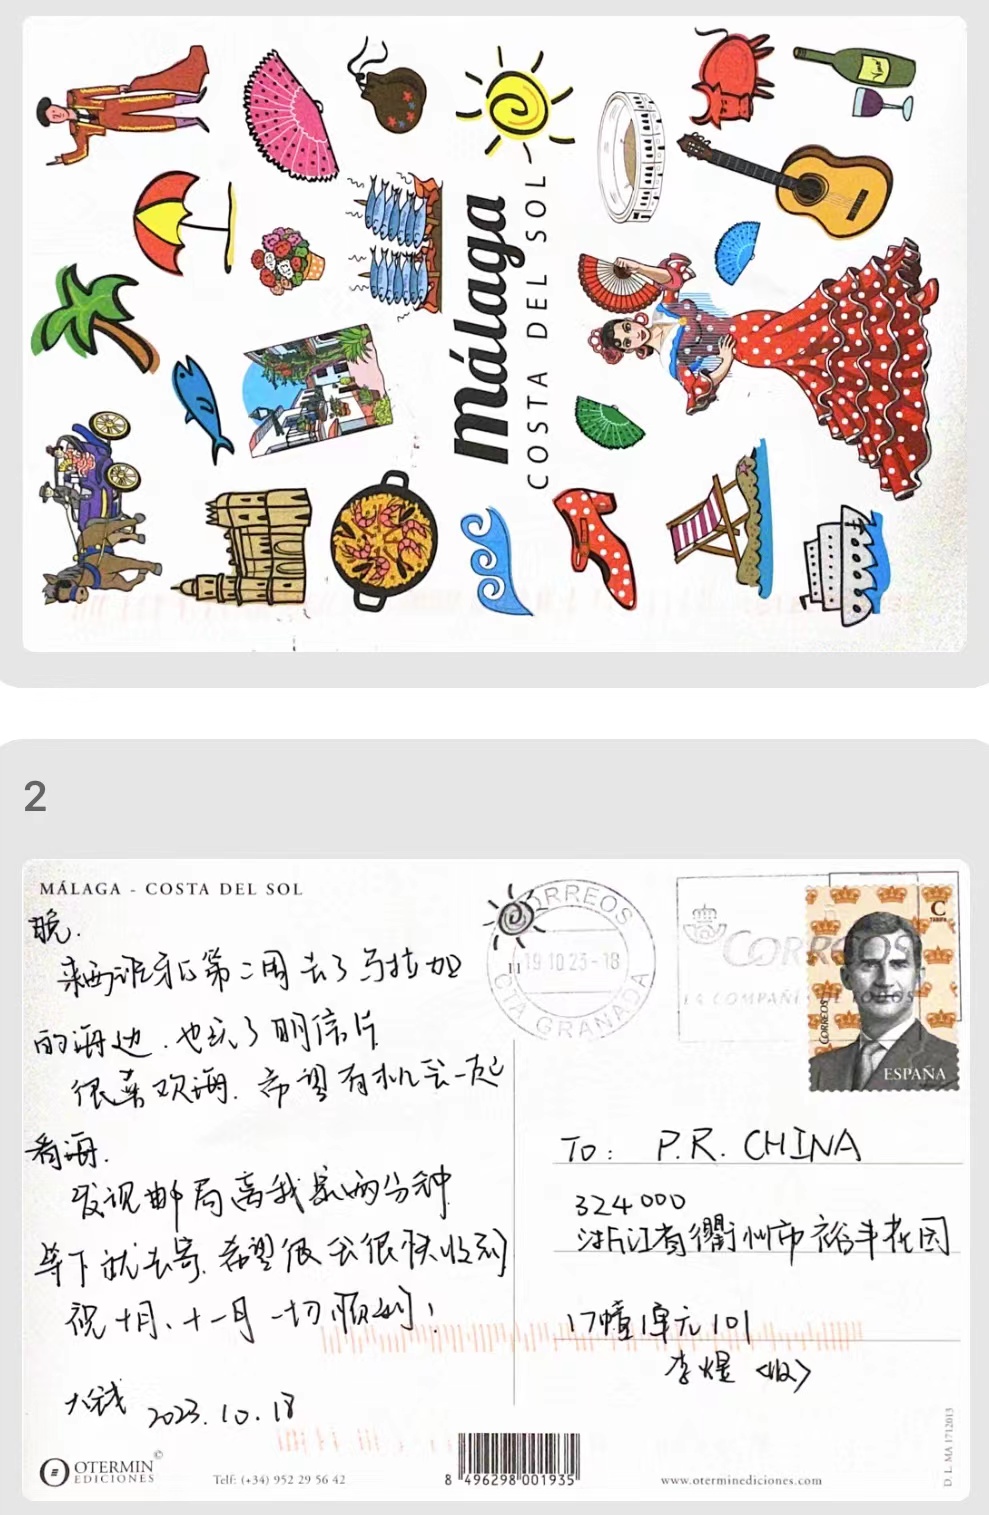 málaga
COSTA DEL SOL
2
MÁLAGA - COSTA DEL SOL
晚.
来西班牙的第二周去了马拉加
的海边.也玩了明信片
很喜欢海.希望有机会一起
看海.
发现邮局离我家两分钟
等下就去寄.希望你会很快收到
祝十月、十一月一切顺利!
大钱 2023.10.18
CORREOS
19 10 23-18
CTA GRANADA
CORREOS
LA COMPAÑÍA DE TODOS
C
TARIFA
CORREOS
ESPAÑA
TO: P.R. CHINA
324000
浙江省衢州市裕丰花园
17幢1单元101
李煜〈收〉
OTERMIN©
EDICIONES
Telf: (+34) 952 29 56 42
8 496298 001935
www.oterminediciones.com
D. L. MA 1712013